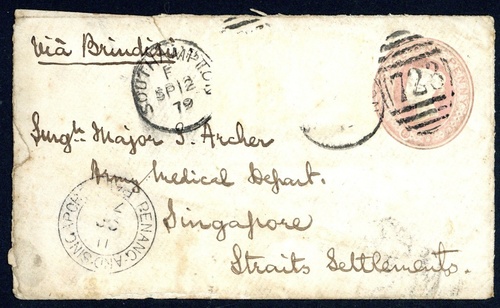 Viâ Brindisi
SOUTHAMPTON
F
SP 12
79
PENNY
723
Surgn. Major S. Archer
Army Medical Depart.
Singapore
Straits Settlements.
PENANG AND SINGAPORE